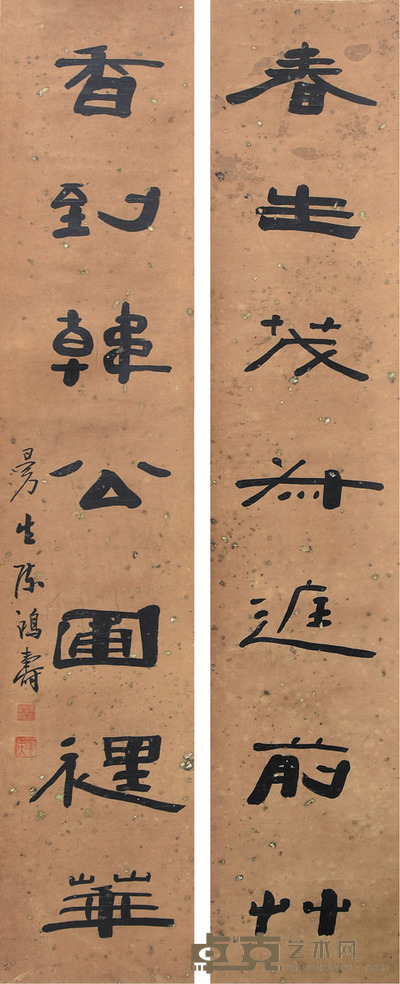 春生茂叔庭前艸
香到韓公圃裡華
曼生陳鴻壽
卓克艺术网